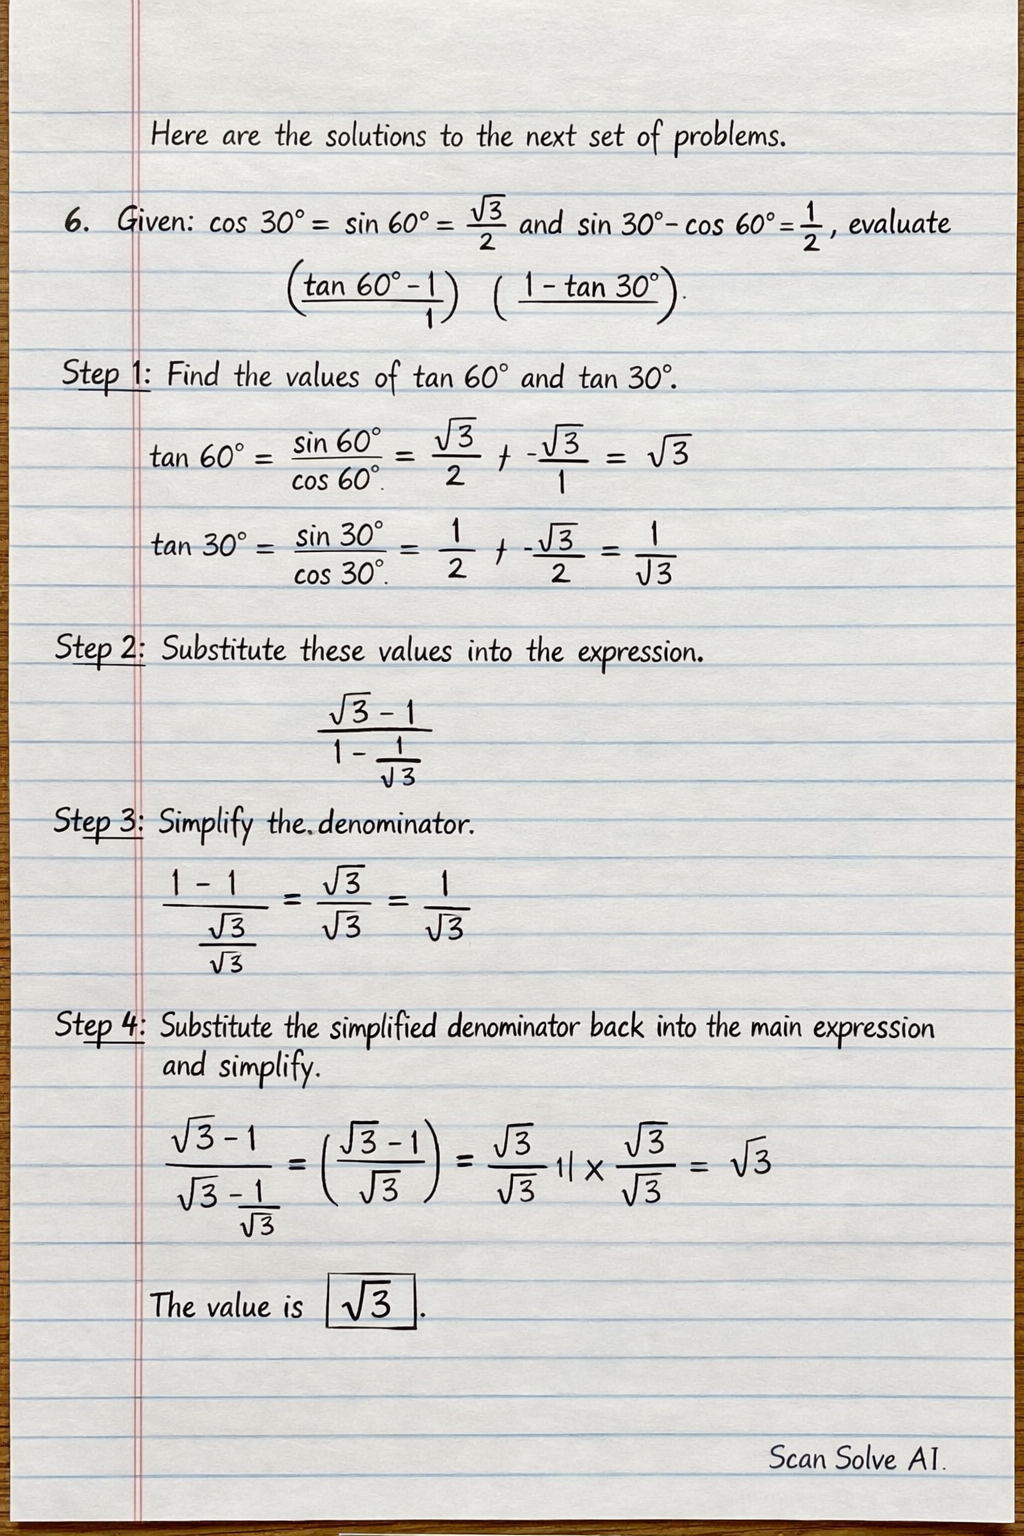 Here are the solutions to the next set of problems.
6. Given: cos 30° = sin 60° = √3/2 and sin 30° - cos 60° = 1/2, evaluate
(tan 60° - 1/1) (1 - tan 30°).
Step 1: Find the values of tan 60° and tan 30°.
tan 60° = sin 60°/cos 60°. = √3/2 + -√3/1 = √3
tan 30° = sin 30°/cos 30°. = 1/2 + -√3/2 = 1/√3
Step 2: Substitute these values into the expression.
√3 - 1
1 - 1/√3
Step 3: Simplify the. denominator.
1 - 1/√3/√3 = √3/√3 = 1/√3
Step 4: Substitute the simplified denominator back into the main expression
and simplify.
√3 - 1/√3 - 1/√3 = (√3 - 1/√3) = √3/√3 - 1| × √3/√3 = √3
The value is √3.
Scan Solve AI.